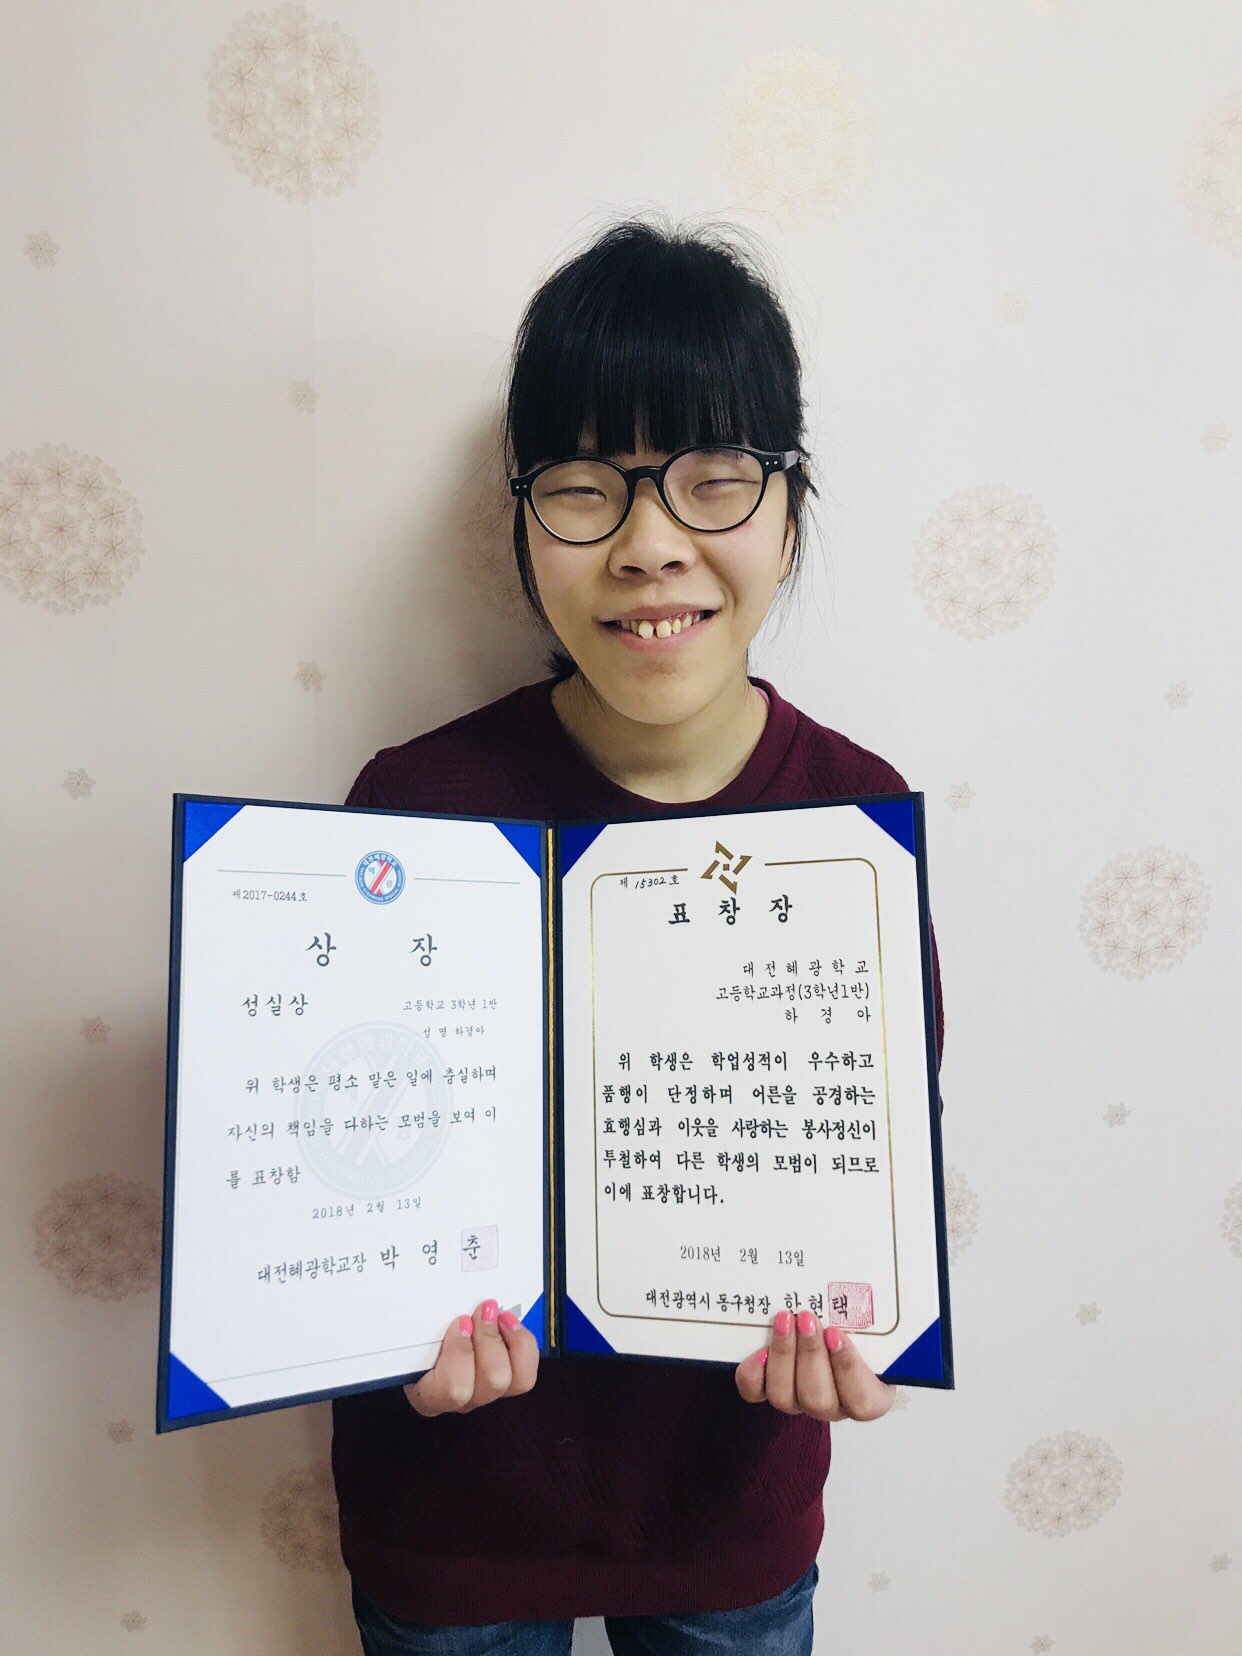 제2017-0244호
상 장
성실상
고등학교 3학년 1반
성 명 하경아
위 학생은 평소 맡은 일에 충실하며
자신의 책임을 다하는 모범을 보여 이
를 표창함
2018년 2월 13일
대전혜광학교장 박 영 춘
제 15302 호
표 창 장
대전혜광학교
고등학교과정(3학년1반)
하 경 아
위 학생은 학업성적이 우수하고
품행이 단정하며 어른을 공경하는
효행심과 이웃을 사랑하는 봉사정신이
투철하여 다른 학생의 모범이 되므로
이에 표창합니다.
2018년 2월 13일
대전광역시 동구청장 한 현 택